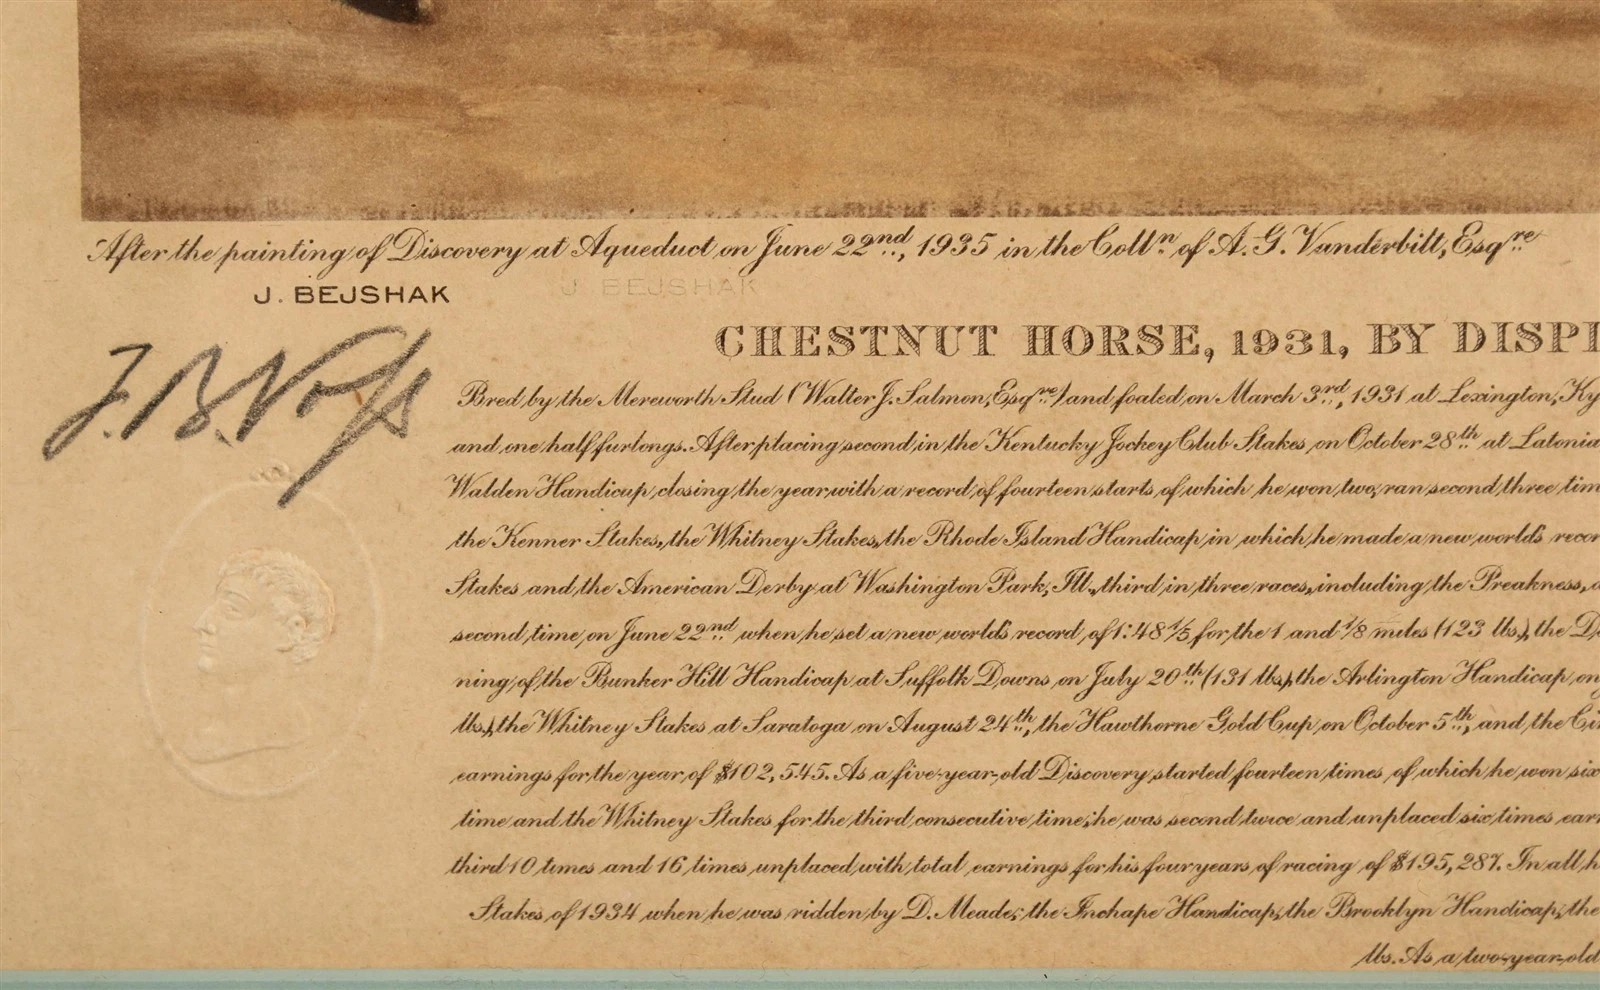 After the painting of Discovery at Aqueduct on June 22nd, 1935 in the Colln of A. G. Vanderbilt, Esqre
J. BEJSHAK J. BEJSHAK
F. B. Voss
CHESTNUT HORSE, 1931, BY DISPL
Bred by the Mereworth Stud (Walter J. Salmon, Esqre) and foaled on March 3rd, 1931 at Lexington, Ky
and one half furlongs. After placing second in the Kentucky Jockey Club Stakes on October 28th at Latonia
Walden Handicup, closing the year with a record of fourteen starts of which he won two, ran second three tim
the Kenner Stakes, the Whitney Stakes, the Rhode Island Handicap in which he made a new world's recor
Stakes and the American Derby at Washington Park, Ill., third in three races, including the Preakness, a
second time on June 22nd when he set a new world's record of 1:48 1/5 for the 1 and 1/8 miles (123 lbs.), the
ning of the Bunker Hill Handicap at Suffolk Downs on July 20th (131 lbs.), the Arlington Handicap on
lbs.), the Whitney Stakes at Saratoga on August 24th, the Hawthorne Gold Cup on October 5th, and the Ci
earnings for the year of $102,545. As a five-year-old Discovery started fourteen times of which he won six
time and the Whitney Stakes for the third consecutive time; he was second twice and unplaced six times ear
third 10 times and 16 times unplaced with total earnings for his four years of racing of $195,287. In all h
Stakes of 1934 when he was ridden by D. Meade; the Inchape Handicap, the Brooklyn Handicap, the
lbs. As a two-year-old